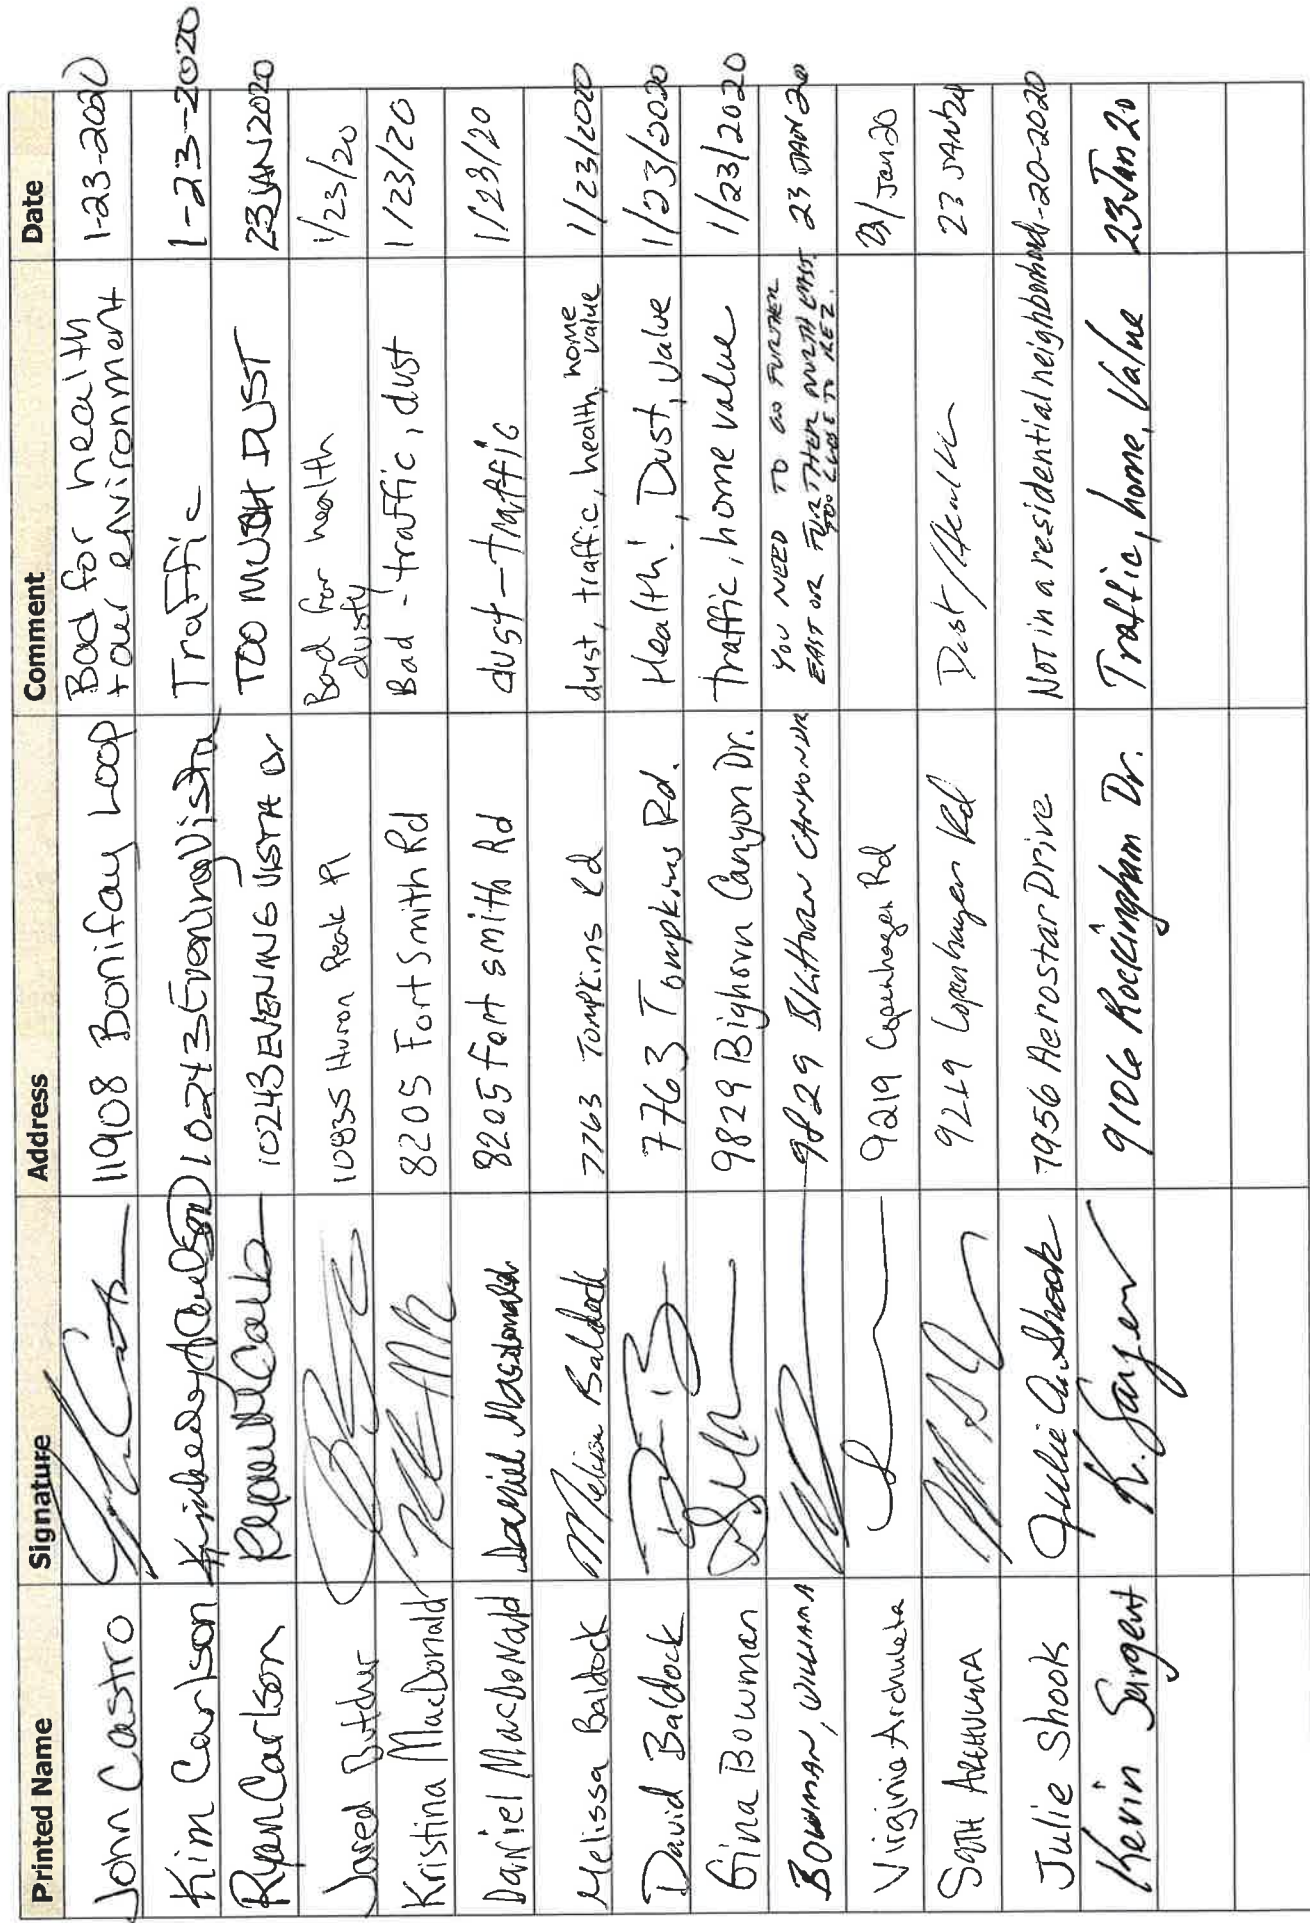 Printed Name Signature Address Comment Date
John Castro 11908 Bonifay Loop Bad for health 1-23-2020
+ our environment
Kim Carlson Kimberly A Carlson 10243 Evening Vista Traffic 1-23-2020
Ryan Carlson 10243 EVENING VISTA Dr TOO MUCH DUST 23JAN2020
Jared Butcher 10835 Huron Peak Pl Bad for health 1/23/20
dusty
Kristina MacDonald 8205 Fort Smith Rd Bad - traffic, dust 1/23/20
Daniel MacDonald Daniel Macdonald 8205 Fort smith Rd dust - traffic 1/23/20
Melissa Baldock Melissa Baldock 7763 Tompkins Rd dust, traffic, health, home value 1/23/2020
David Baldock 7763 Tompkins Rd. Health!, Dust, Value 1/23/2020
Gina Bowman 9829 Bighorn Canyon Dr. traffic, home value 1/23/2020
BOWMAN, WILLIAM 9829 BIGHORN CANYON DR YOU NEED TO GO FURTHER 23 JAN 20
EAST OR FURTHER NORTH EAST.
TOO CLOSE TO REZ.
Virginia Archuleta 9219 Copenhagen Rd 23/Jan20
SCOTT ARCHULETA 9219 Copenhagen Rd Dust/Health 23 JAN 20
Julie Shook Julie A. Shook 7956 Aerostar Drive Not in a residential neighborhood 1-20-2020
Kevin Sargent K. Sargent 9106 Rockingham Dr. Traffic, home, Value 23 Jan 20